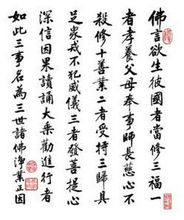 佛言欲生彼國者當修三福一
者孝養父母奉事師長慈心不
殺修十善業二者受持三歸具
足衆戒不犯威儀三者發菩提心
深信因果讀誦大乘勸進行者
如此三事名為三世諸佛淨業正因